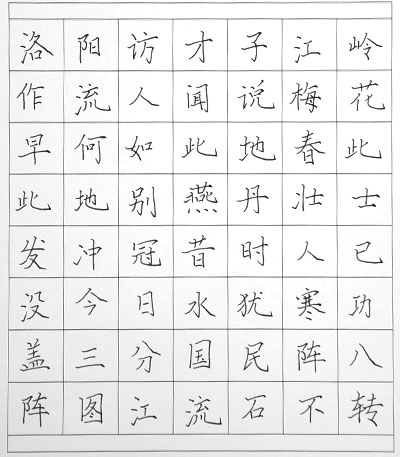 洛阳访才子江岭
作流人闻说梅花
早何如此地春此
此地别燕丹壮士
发冲冠昔时人已
没今日水犹寒功
盖三分国民阵八
阵图江流石不转